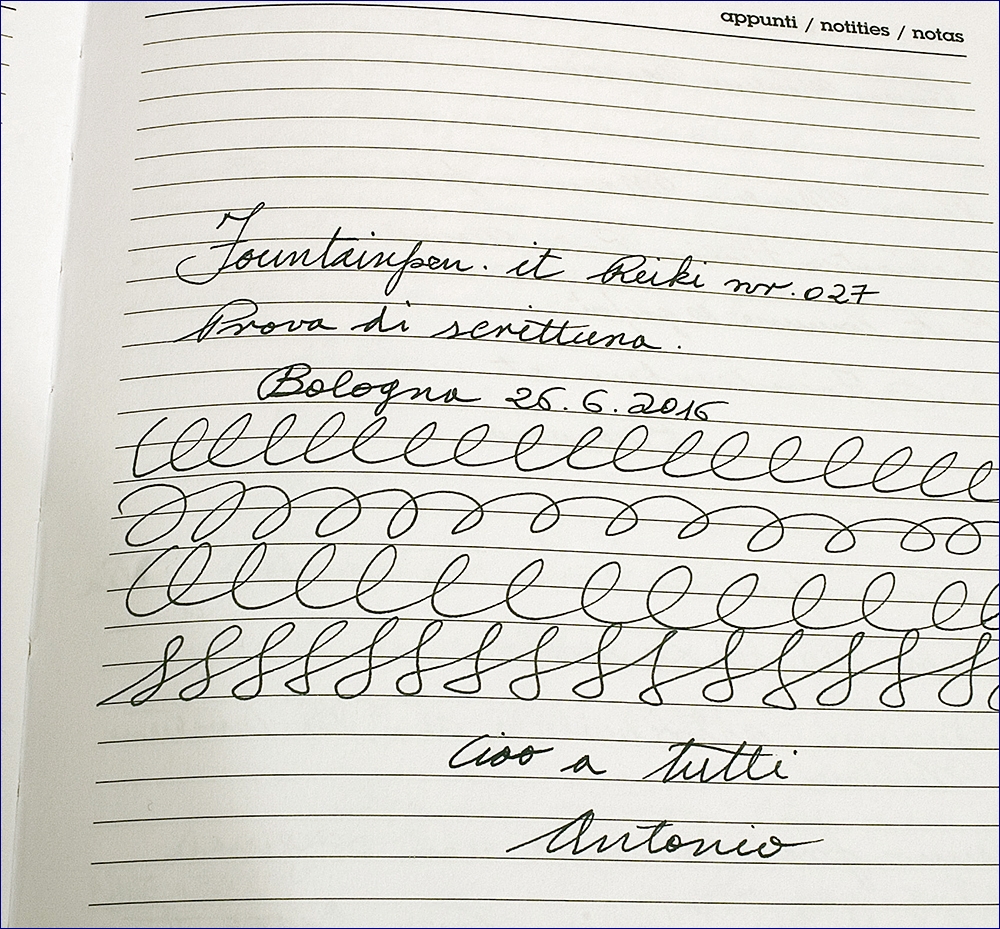 appunti / notities / notas
Fountainpen.it Reiki nr. 027
Prova di scrittura.
Bologna 26.6.2016
ciao a tutti
Antonio